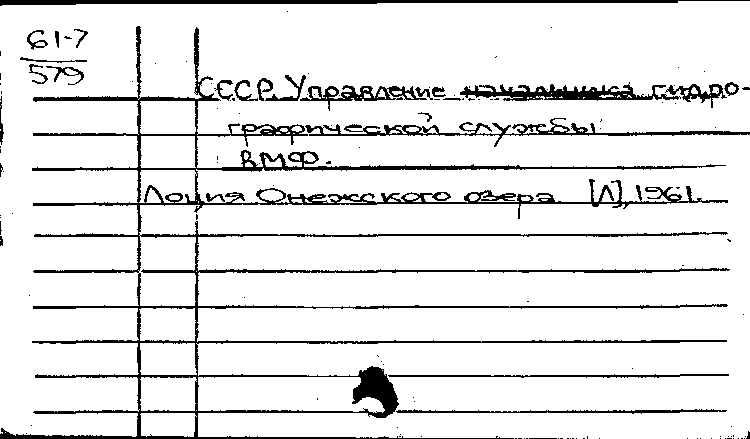 61-7
579
СССР. Управление начальника гидро-
графической службы
ВМФ.
Лоция Онежского озера [Л], 1961.